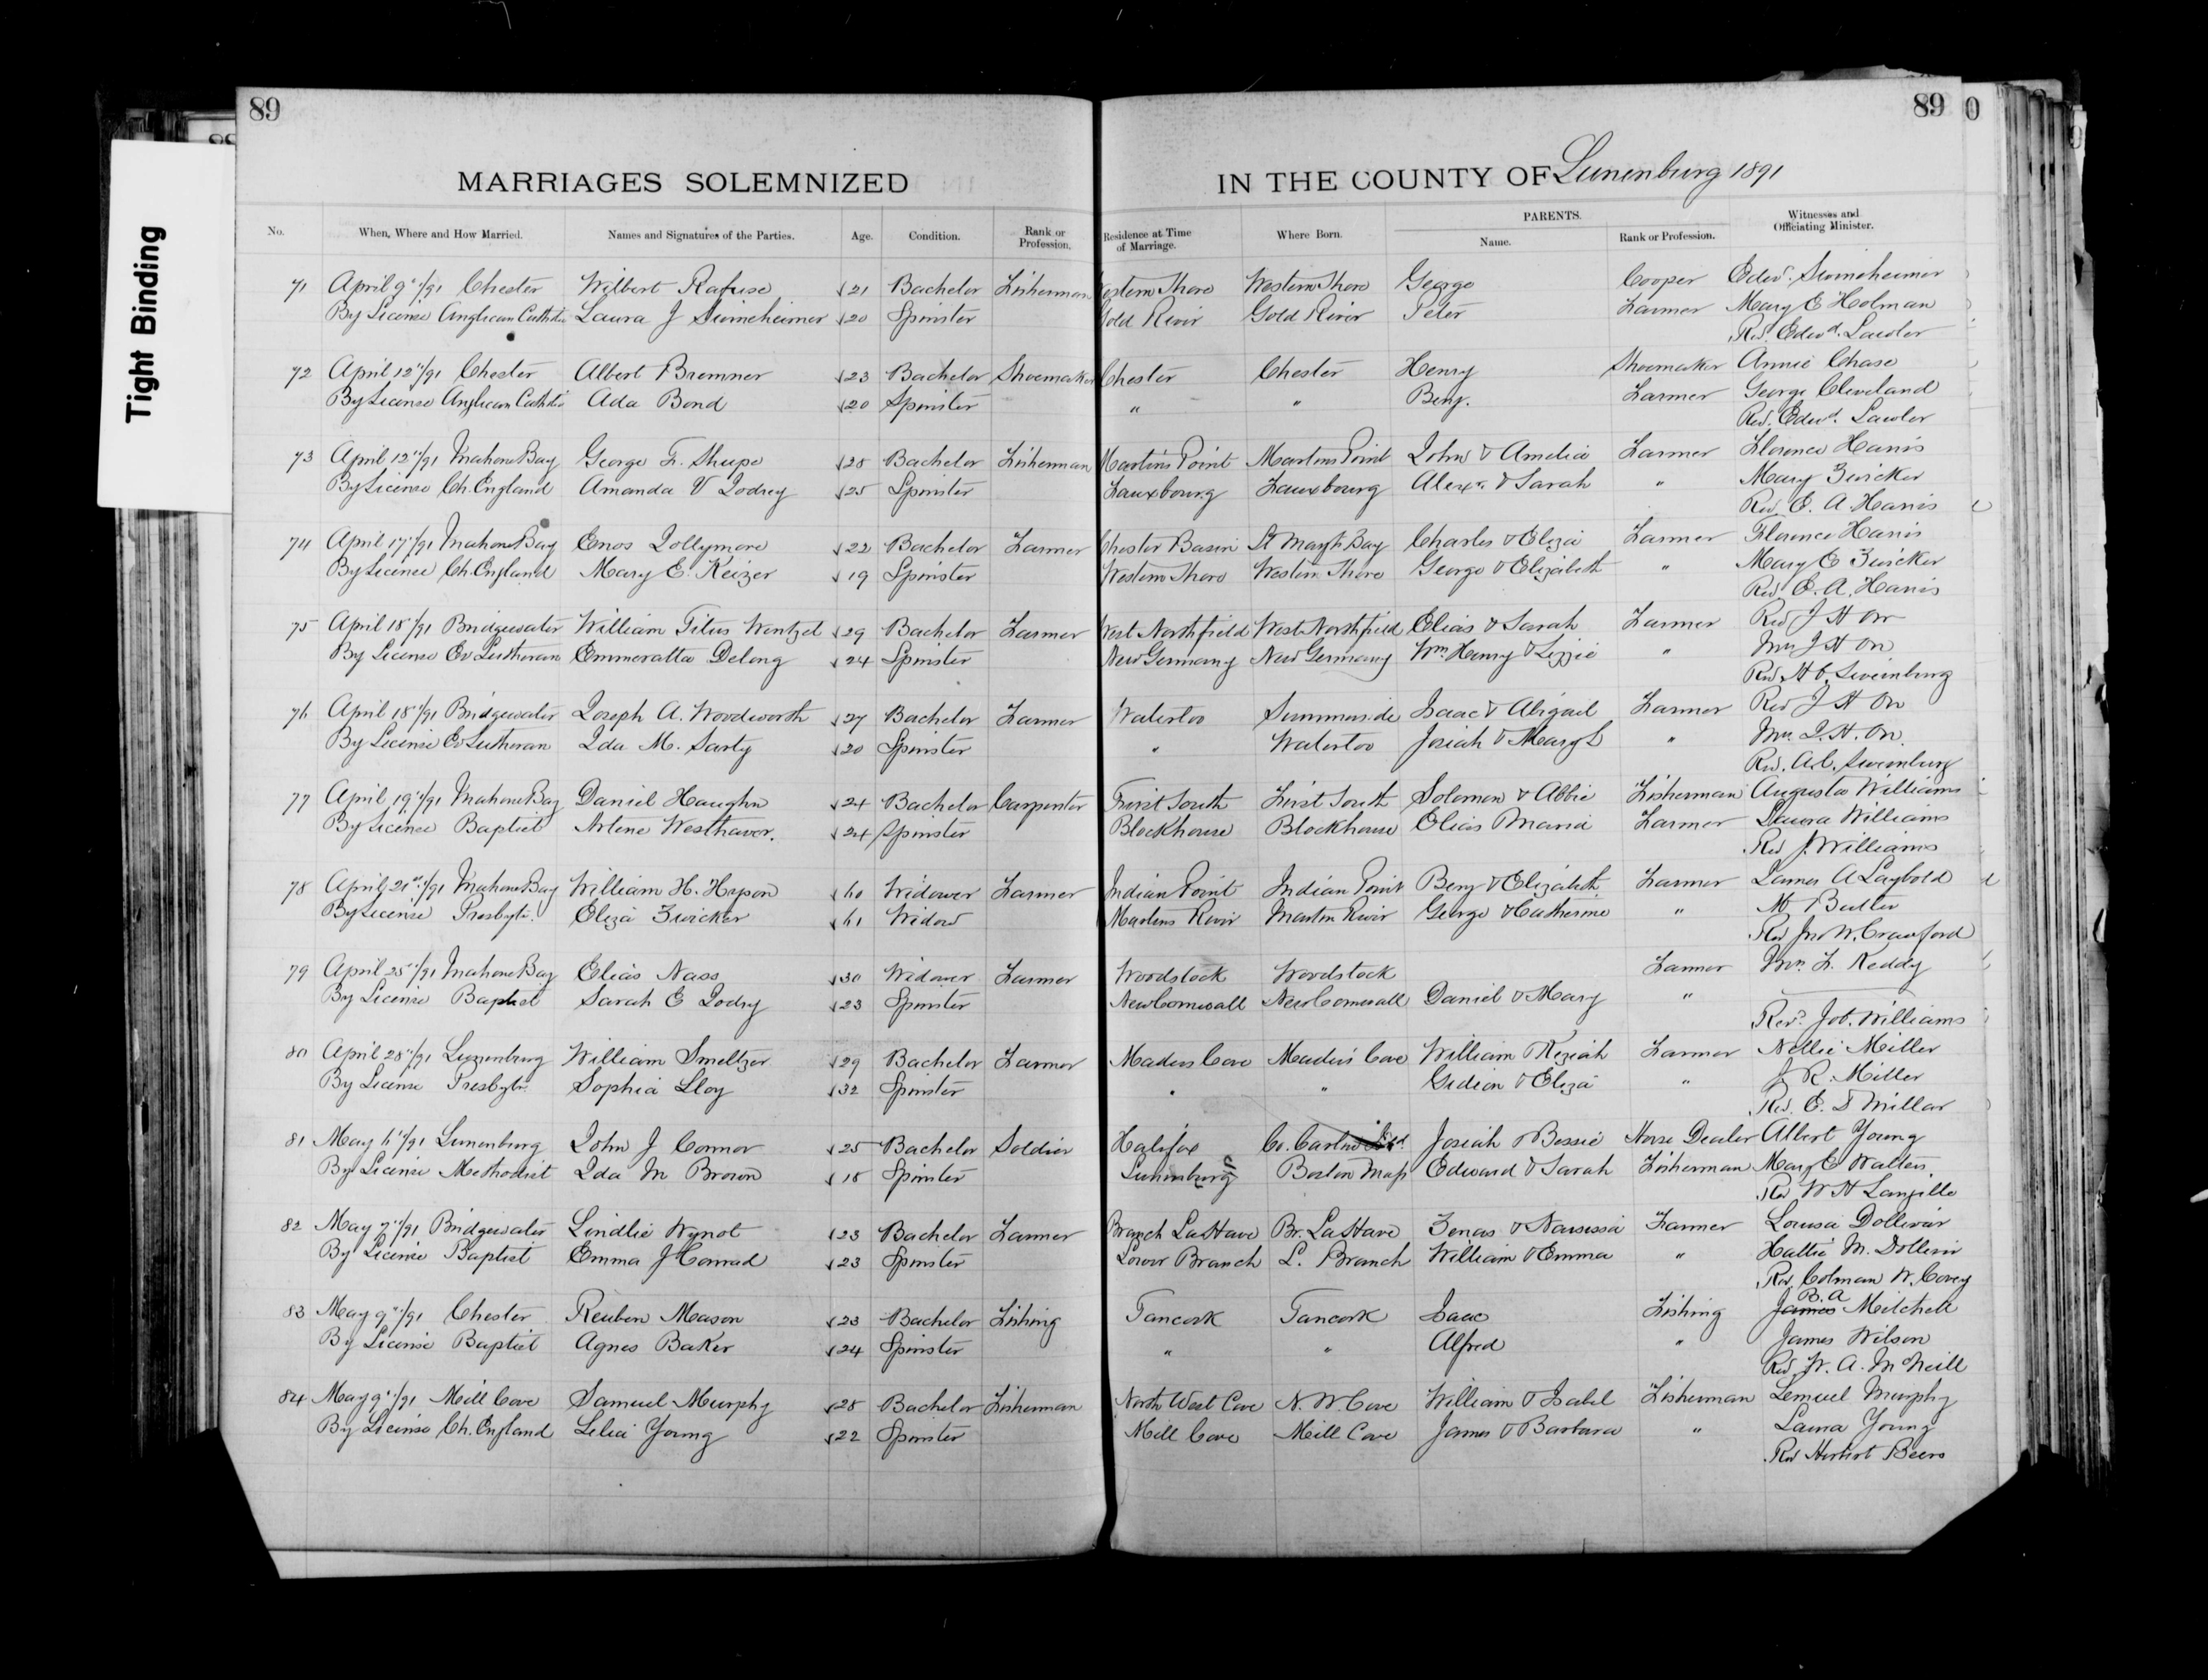 89
89
0
Tight Binding
MARRIAGES SOLEMNIZED IN THE COUNTY OF Lunenburg 1891
No. When, Where and How Married. Names and Signatures of the Parties. Age. Condition. Rank or Profession. Residence at Time of Marriage. Where Born. PARENTS. Name. Rank or Profession. Witnesses and Officiating Minister.
71 April 9"/91 Chester Wilbert Rafuse 21 Bachelor Fisherman Western Shore Western Shore George Cooper Edwd. Swineheimer
By License Anglican Catholic Laura J Swineheimer 20 Spinster Gold River Gold River Peter Farmer Mary E Holman
Rev. Edwd. Lawlor
72 April 12"/91 Chester Albert Bremner 23 Bachelor Shoemaker Chester Chester Henry Shoemaker Annie Chase
By License Anglican Catholic Ada Bond 20 Spinster " " Benj. Farmer George Cleveland
Rev. Edwd. Lawlor
73 April 12"/91 Mahone Bay George F. Shupe 28 Bachelor Fisherman Martins Point Martins Point John & Amelia Farmer Florence Harris
By License Ch. England Amanda V Jodrey 25 Spinster Fauxbourg Fauxbourg Alexr. & Sarah " Mary Zwicker
Rev E. A. Harris
74 April 17"/91 Mahone Bay Enos Jollymore 22 Bachelor Farmer Chester Basin St Margts Bay Charles & Eliza Farmer Florence Harris
By License Ch. England Mary E. Keizer 19 Spinster Western Shore Western Shore George & Elizabeth " Mary E Zwicker
Rev E. A. Harris
75 April 18"/91 Bridgewater William Titus Wentzel 29 Bachelor Farmer West Northfield West Northfield Elias & Sarah Farmer Rev J H Orr
By License Ev Lutheran Emmeratta Delong 24 Spinster New Germany New Germany Wm. Henry & Lizzie " Mrs J H Orr
Rev
76 April 18"/91 Bridgewater Joseph A. Woodworth 27 Bachelor Farmer Waterloo Summerside Isaac & Abigail Farmer Rev J H Orr
By License Ev Lutheran Ida M. Sarty 20 Spinster " Waterloo Josiah & Mary " Mrs. J. H. Orr.
Rev.
77 April 19"/91 Mahone Bay Daniel Haughn 24 Bachelor Carpenter First South First South Solomon & Abbie Fisherman Augusta Williams
By License Baptist Arlene Westhaver. 24 Spinster Blockhouse Blockhouse Elias Maria Farmer Laura Williams
Rev J. Williams
78 April 21st/91 Mahone Bay William H. Hyson 60 Widower Farmer Indian Point Indian Point Benj & Elizabeth Farmer James A Laybold
By License Presbytr. Eliza Zwicker 61 Widow Martins River Martin River George & Catherine " M Butler
Rev Jno W. Crawford
79 April 25"/91 Mahone Bay Elias Nass 30 Widower Farmer Woodstock Woodstock Farmer L. Keddy
By License Baptist Sarah E Jodry 23 Spinster New Cornwall New Cornwall Daniel & Mary "
Revd. Job. Williams
80 April 28"/91 Lunenburg William Smeltzer 29 Bachelor Farmer Maders Cove Maders Cove William Keziah Farmer Nellie Miller
By License Presbytr. Sophia Lloy 32 Spinster " " Gidion & Eliza " J R. Miller
Rev. E. D Millar
81 May 6"/91 Lunenburg John J Connor 25 Bachelor Soldier Halifax Co. Josiah & Bessie Horse Dealer Albert Young
By License Methodist Ida M Brown 18 Spinster Lunenburg Boston Mass Edward & Sarah Fisherman Mary E Walters.
Rev W H Langille
82 May 7"/91 Bridgewater Lindlie Wynot 23 Bachelor Farmer Branch LaHave Br. LaHave Zenas & Narsissa Farmer Louisa Dolliver
By License Baptist Emma J Conrad 23 Spinster Lower Branch L. Branch William & Emma " Hattie M. Dolliver
Rev. Colman W. Corey
83 May 9"/91 Chester Reuben Mason 23 Bachelor Fishing Tancook Tancook Isaac Fishing James B. A Mitchell
By License Baptist Agnes Baker 24 Spinster " " Alfred " James Wilson
Rev. W. A. McNeill
84 May 9"/91 Mill Cove Samuel Murphy 28 Bachelor Fisherman North West Cove N. W. Cove William & Isabel Fisherman Lemuel Murphy
By License Ch. England Lelia Young 22 Spinster Mill Cove Mill Cove James & Barbara " Laura Young
Rev Herbert Beers